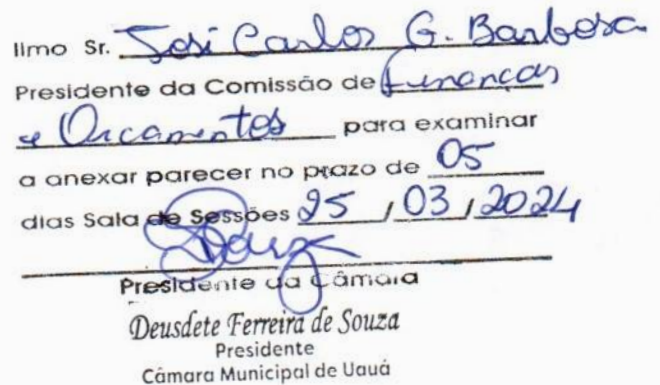 Ilmo Sr. José Carlos G. Barbosa
Presidente da Comissão de Finanças
e Orçamentos para examinar
a anexar parecer no prazo de 05
dias Sala de Sessões 25 / 03 / 2024
Presidente da Câmara
Deusdete Ferreira de Souza
Presidente
Câmara Municipal de Uauá